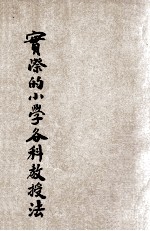 實際的小學各科教授法